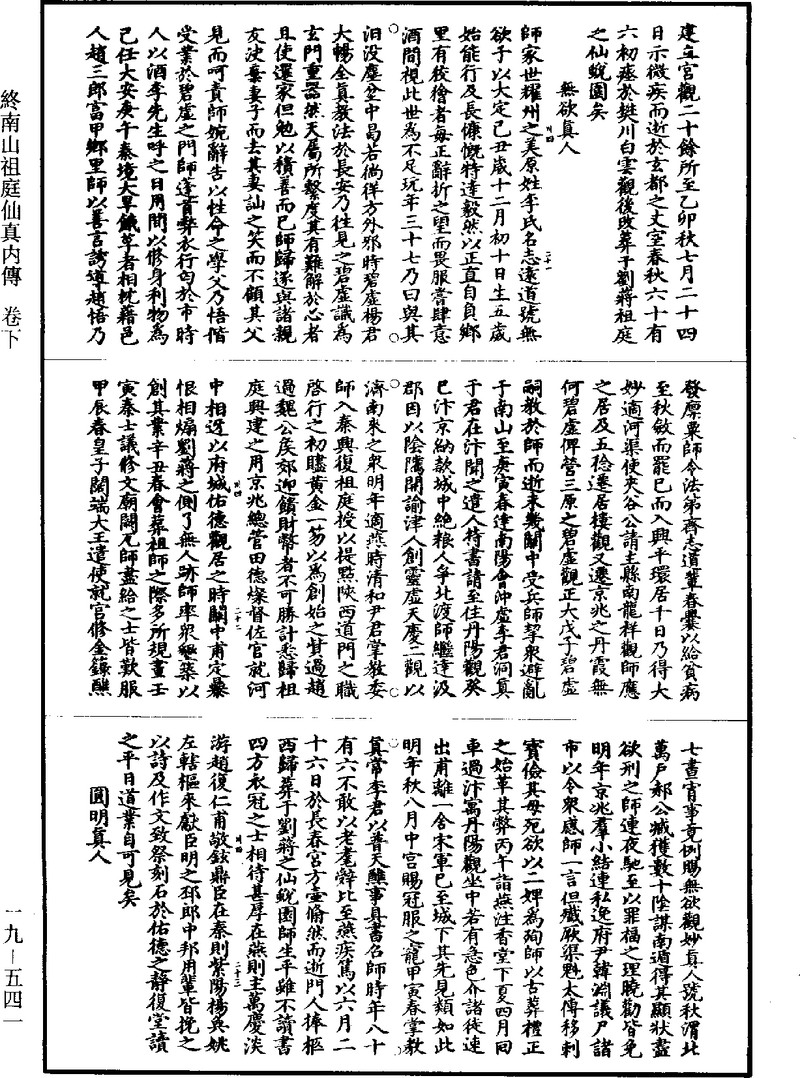 建立宮觀二十餘所至乙卯秋七月二十四
日示微疾而逝於玄都之丈室春秋六十有
六初瘞於樊川白雲觀後改葬于劉蔣祖庭
之仙蛻園矣
無欲真人
師家世耀州之美原姓李氏名志遠道號無
欲子以大定己丑歲十二月初十日生五歲
始能行及長慷慨特達毅然以正直自負鄉
里有狡獪者每正辭折之望而畏服嘗肆意
酒間視此世為不足玩年三十七乃曰與其
汨没塵坌中曷若徜徉方外邪時碧虛楊君
大暢全真教法於長安乃往見之碧虛識為
玄門重器然天屬所繫度其有難解於心者
且使還家但勉以積善而已師歸遂與諸親
友決棄妻子而去其妻訕之笑而不顧其父
見而呵責師婉辭告以性命之學父乃悟偕
受業於碧虛之門師蓬首弊衣行匄於市時
人以酒李先生呼之日用間以修身利物為
己任大安庚午秦境大旱餓莩者相枕藉邑
人趙三郎富甲鄉里師以善言誘導趙悟乃
發廩粟師令法弟齊志道輩舂爨以給貧病
至秋斂而罷已而入興平環居千日乃得大
妙適河渠使夾谷公請主縣南龍祥觀師應
之居及五稔遷居樓觀又遷京兆之丹霞無
何碧虛俾營三原之碧虛觀正大戊子碧虛
嗣教於師而逝未幾關中受兵師挈衆避亂
于南山至庚寅春達南陽會沖虛李君洞真
于君在汴聞之遣人持書請至住丹陽觀癸
巳汴京納款城中絶粮人爭北渡師繼達汲
郡因以陰隲開諭津人創靈虛天慶二觀以
濟南來之衆明年適燕時清和尹君掌教委
師入秦興復祖庭授以提點陝西道門之職
啓行之初贐黄金一笏以為創始之貲過趙
過魏公侯郊迎饋財幣者不可勝計悉歸祖
庭興建之用京兆總管田德燦督佐官就河
中相迓以府城佑德觀居之時關中甫定暴
恨相煽劉蔣之側了無人跡師率衆堊築以
創其業辛丑春會葬祖師之際多所規畫壬
寅秦士議修文廟闕瓦師盡給之士皆歎服
甲辰春皇子闊端大王遣使就宫修金籙醮
七晝宵事竟例賜無欲觀妙真人號秋渭北
萬戶郝公臧獲數十陰謀南遁得其顯狀盡
欲刑之師連夜馳至以罪福之理曉勸皆免
明年京兆羣小結連私逸府尹韓淵議尸諸
市以令衆感師一言但殲厥渠魁太傅移剌
寶儉其母死欲以二婢為殉師以古葬禮正
之始革其弊丙午詣燕注香堂下夏四月回
車過汴寓丹陽觀坐中若有急色亦諸徒速
出甫離一舍宋軍已至城下其先見類如此
明年秋八月中宫賜冠服之寵甲寅春掌教
真常李君以普天醮事具書召師時年八十
有六不敢以老耄辭比至燕疾篤以六月二
十六日於長春宫方壺翛然而逝門人捧柩
西歸葬于劉蔣之仙蛻園師生平雖不讀書
四方衣冠之士相待甚厚在燕則王萬慶淡
游趙復仁甫敬鉉鼎臣在秦則紫陽楊奐姚
左轄樞來獻臣明之邳郎中邦用輩皆挽之
以詩及作文致祭刻石於佑德之靜復堂讀
之平日道業自可見矣
圓明真人
終南山祖庭仙真内傳　卷下
一九—五四一